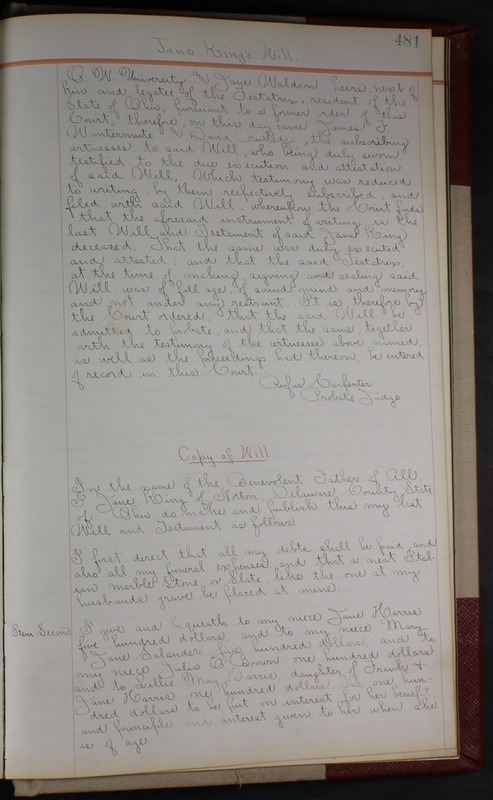 481
Jane King's Will.
O. W. University and Jane Waldron, heirs, next of
kin and legatee of the Testatrix, resident of the
State of Ohio, pursuant to a former order of this
Court; therefore, on this day came James F.
Wintermute and Dana, the subscribing
witnesses to said Will, who being duly sworn
testified to the due execution and attestation
of said Will, Which testimony was reduced
to writing, by them respectively subscribed, and
filed with said Will; whereupon the Court finds
that the aforesaid instrument of writing is the
last Will and Testament of said Jane King
deceased. That the same was duly executed
and attested, and that the said Testatrix,
at the time of making, signing and sealing said
Will, was of full age, of sound mind and memory
and not under any restraint. It is therefore by
the Court ordered, that the said Will be
admitted to probate, and that the same, together
with the testimony of the witnesses above named,
as well as the proceedings had thereon, be entered
of record in this Court.
Rufus Carpenter
Probate Judge
Copy of Will
In the name of the Benevolent Father of All
I, Jane King of Norton, Delaware County State
of Ohio, do make and publish this my last
Will and Testament as follows.
I first direct that all my debts shall be paid, and
also all my funeral expenses and that a neat Ital-
ian marble Stone, or Slate, like the one at my
husbands grave be placed at mine.
Item Second I give and bequeath to my niece Jane Harris
five hundred dollars, and to my niece Mary
Jane Salander five hundred dollars and to
my niece Julia A Brown one hundred dollars
and to Littie May Harris, daughter of Frank &
Jane Harris one hundred dollars, one hun-
dred dollars to be put on interest for her benefit
and principle and interest given to her when she
is of age.